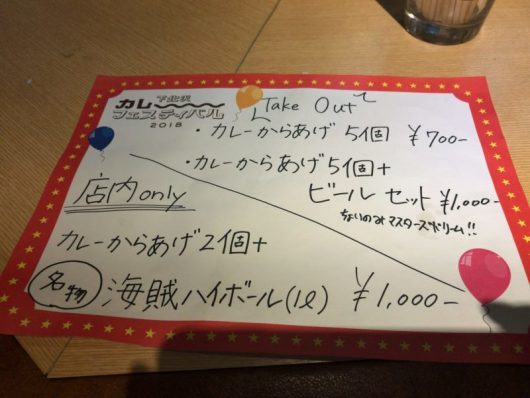 下北沢
カレー
フェスティバル
2018
「Take Out」
・カレーからあげ 5個 ¥700-
・カレーからあげ5個+
ビールセット ¥1,000-
ちょいのみマスターズドリーム!!
店内only
カレーからあげ2個+
名物 海賊ハイボール(1ℓ) ¥1,000-